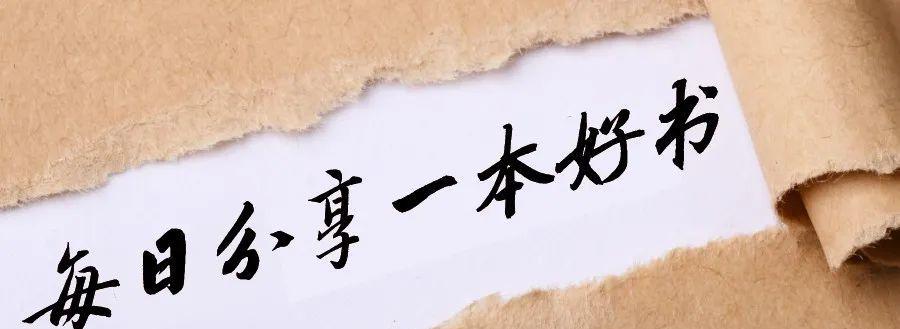 每日分享一本好书